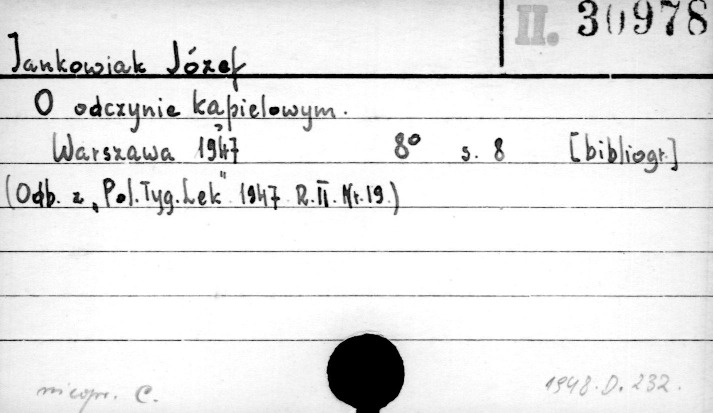 II. 30978
Jankowiak Józef
O odczynie kąpielowym.
Warszawa 1947 8° s. 8 [bibliogr.]
(Odb. z „Pol. Tyg. Lek" 1947 R. II. Nr. 19.)
nieopr. C. 1948. D. 232.